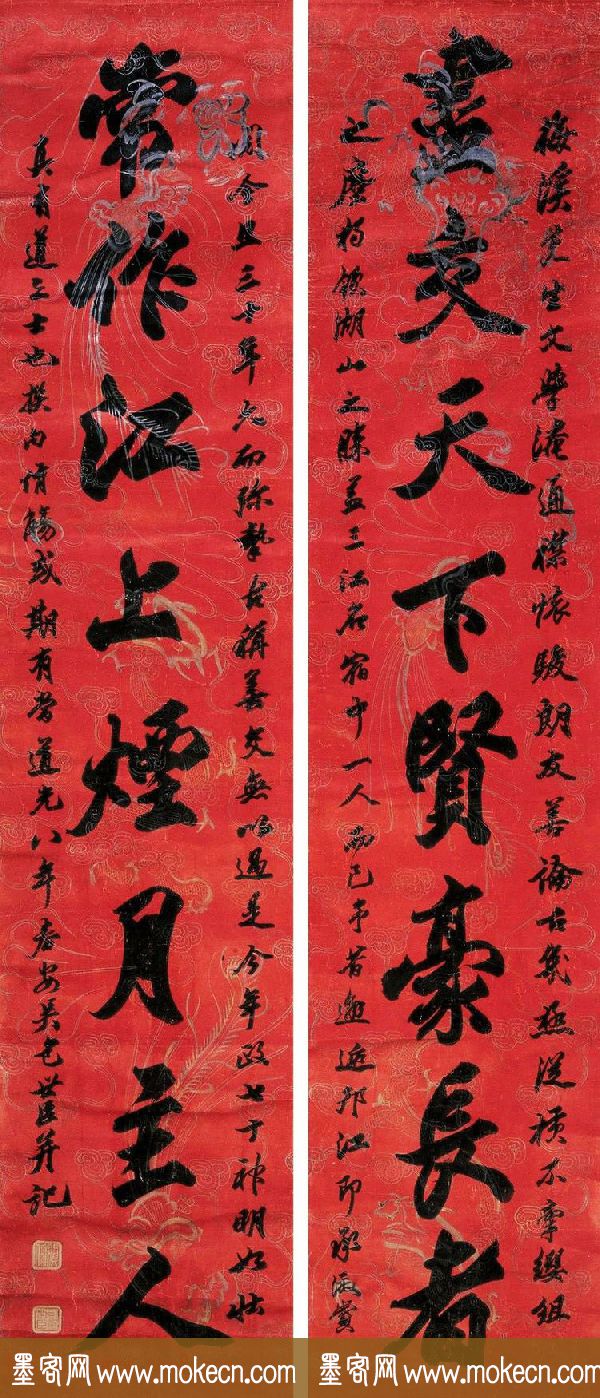 盡交天下賢豪長者
梅溪先生文學淹通襟懷駿朗友善論古幾極從橫不牽纓組
之麾獨飲湖山之勝蓋三江名宿中一人而已予昔邂逅邗江即承激賞
常作江上煙月主人
今且三十年久而弥摯古稱善交無以過是今年政七十神明如壯
真有道之士也撰句侑觴或期有當道光八年春安吳包世臣并記
墨客网 www.mokecn.com
墨客网 www.mokecn.com